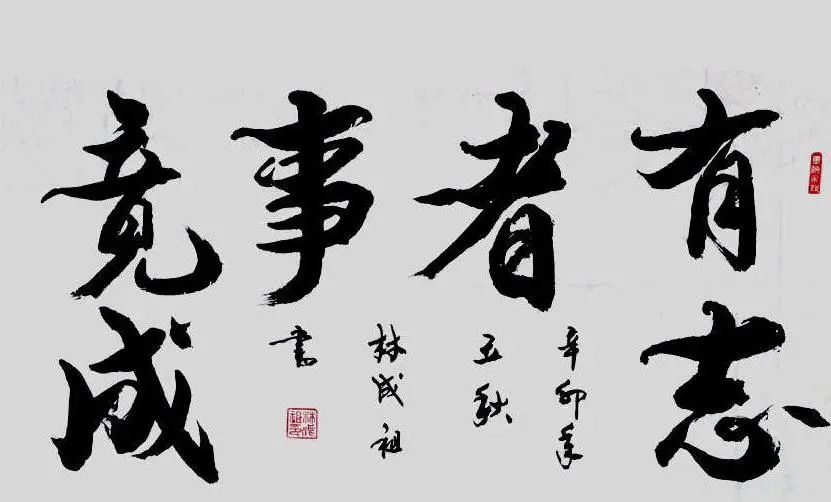 有志
者
事
竟成
辛卯年
玉秋
林成祖
書